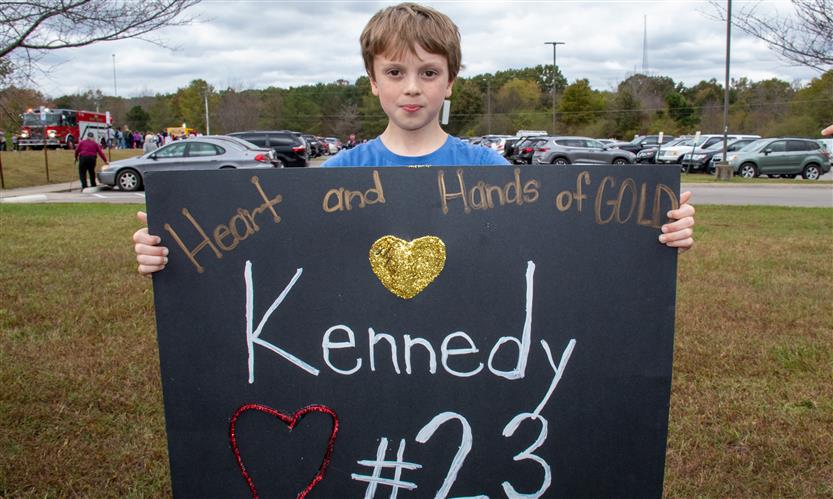 Heart and Hands of GOLD
Kennedy
#23